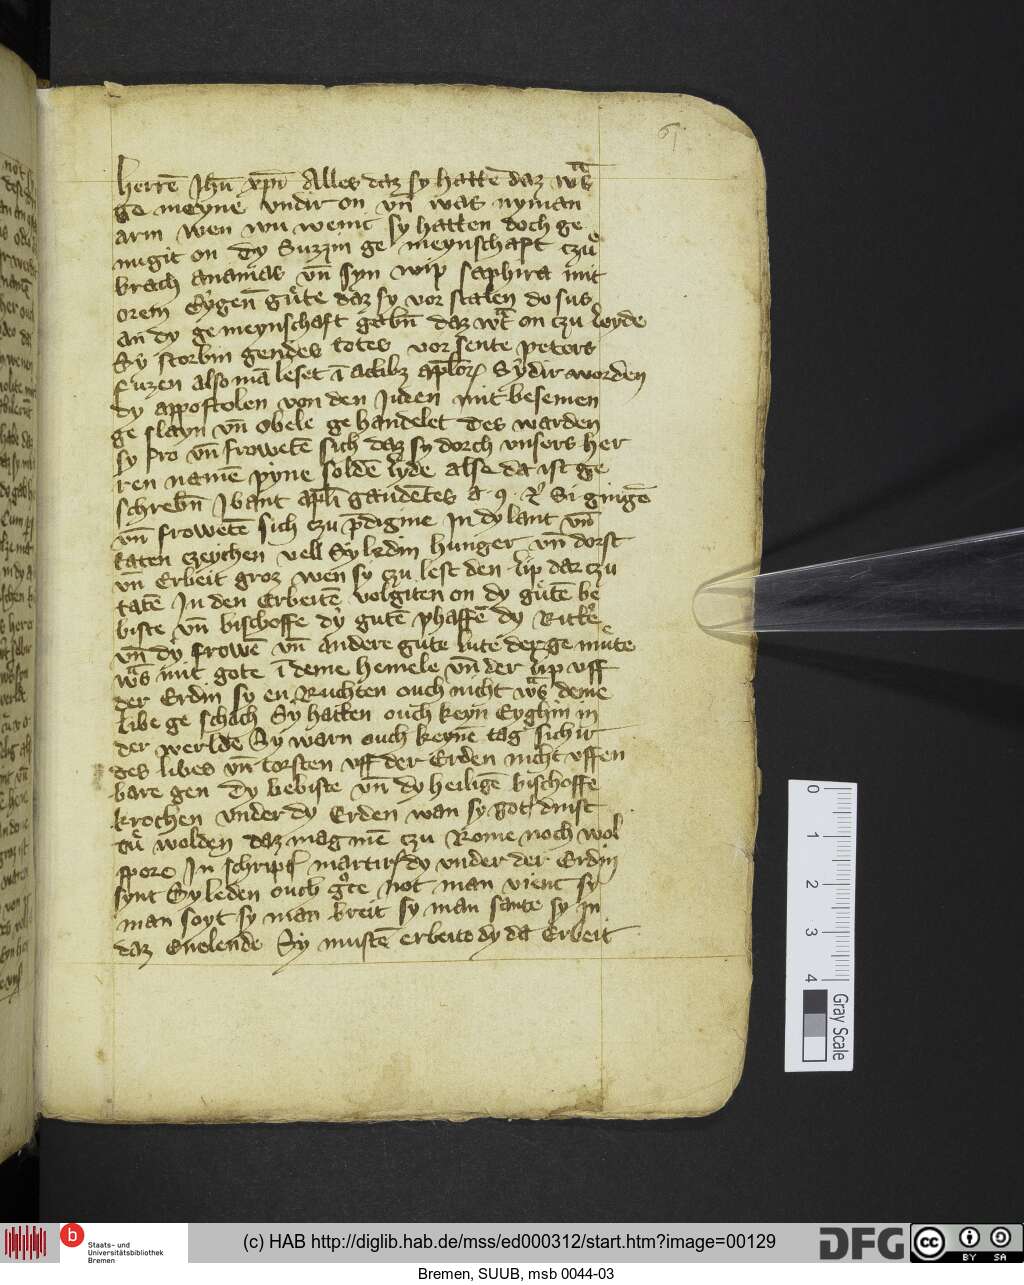 61
herrē Jhū xpī Alles daz sy hattē daz wͣs
ge meyne vndir on vn̄ was nyman
arm wen wu wenic sy hatten doch ge
nugit on Dy Suzzin ge meynschaft czu
brach ananias vn̄ syn wip saphira mit
orem Eygen̄ gute daz sy vor stalen do sus
an dy ge meynschaft gebn̄ daz wͣt on czu leyde
Sy storbin gendes totes vor sente peters
fuzen also mā leset ī actibꝫ aplōꝝ Sy dir worden
dy appostolen von den Juden mit besemen
ge slayn vn̄ obele ge handelet Des warden
sy vro vn̄ frowetē sich daz sy dorch vnsers her
ren namē pyne soldē lyde also da ist ge
schrebn̄ Ibant apl̄i gaudētes a 9 Si gingē
vn̄ frowetē sich czu p̄digine In dy lant vn̄
taten czeychen vell Sy ledin hunger vn̄ dorst
vn̄ Erbeit groz wen sy czu lest den lip dar czu
tatē In den Erbeitē volgiten on dy gutē be
biste vn̄ bischoffe dy gutē phaffē dy Ritte͛
vn̄ dy frowē vn̄ andere gute lute der ge mute
wͣs mit gote ī deme hemele vn̄ der lip vff
der Erdin sy en Ruchten ouch nicht wͣs deme
libe ge schach Sy hatten ouch keyn Eyghin in
der werlde Sy warn ouch keyne tag sichir
des libes vn̄ torsten vff der Erden nicht vffen
bare gen Dy bebiste vn̄ dy heiligē bischoffe
krochen vnder dy Erden wan sy got dinst
tu wolden daz mag mē czu Rome noch wol
spore In schript martirū dy vnder der Erdin
synt Sy leden ouch groͤte not man vienc sy
man soyt sy man breit sy man sante sy in
daz Enelende Sy mustē erbeite dy da Erbeit
0 1 2 3 4
Gray Scale
b Staats- und
Universitätsbibliothek
Bremen
(c) HAB http://diglib.hab.de/mss/ed000312/start.htm?image=00129
DFG
cc BY SA
Bremen, SUUB, msb 0044-03